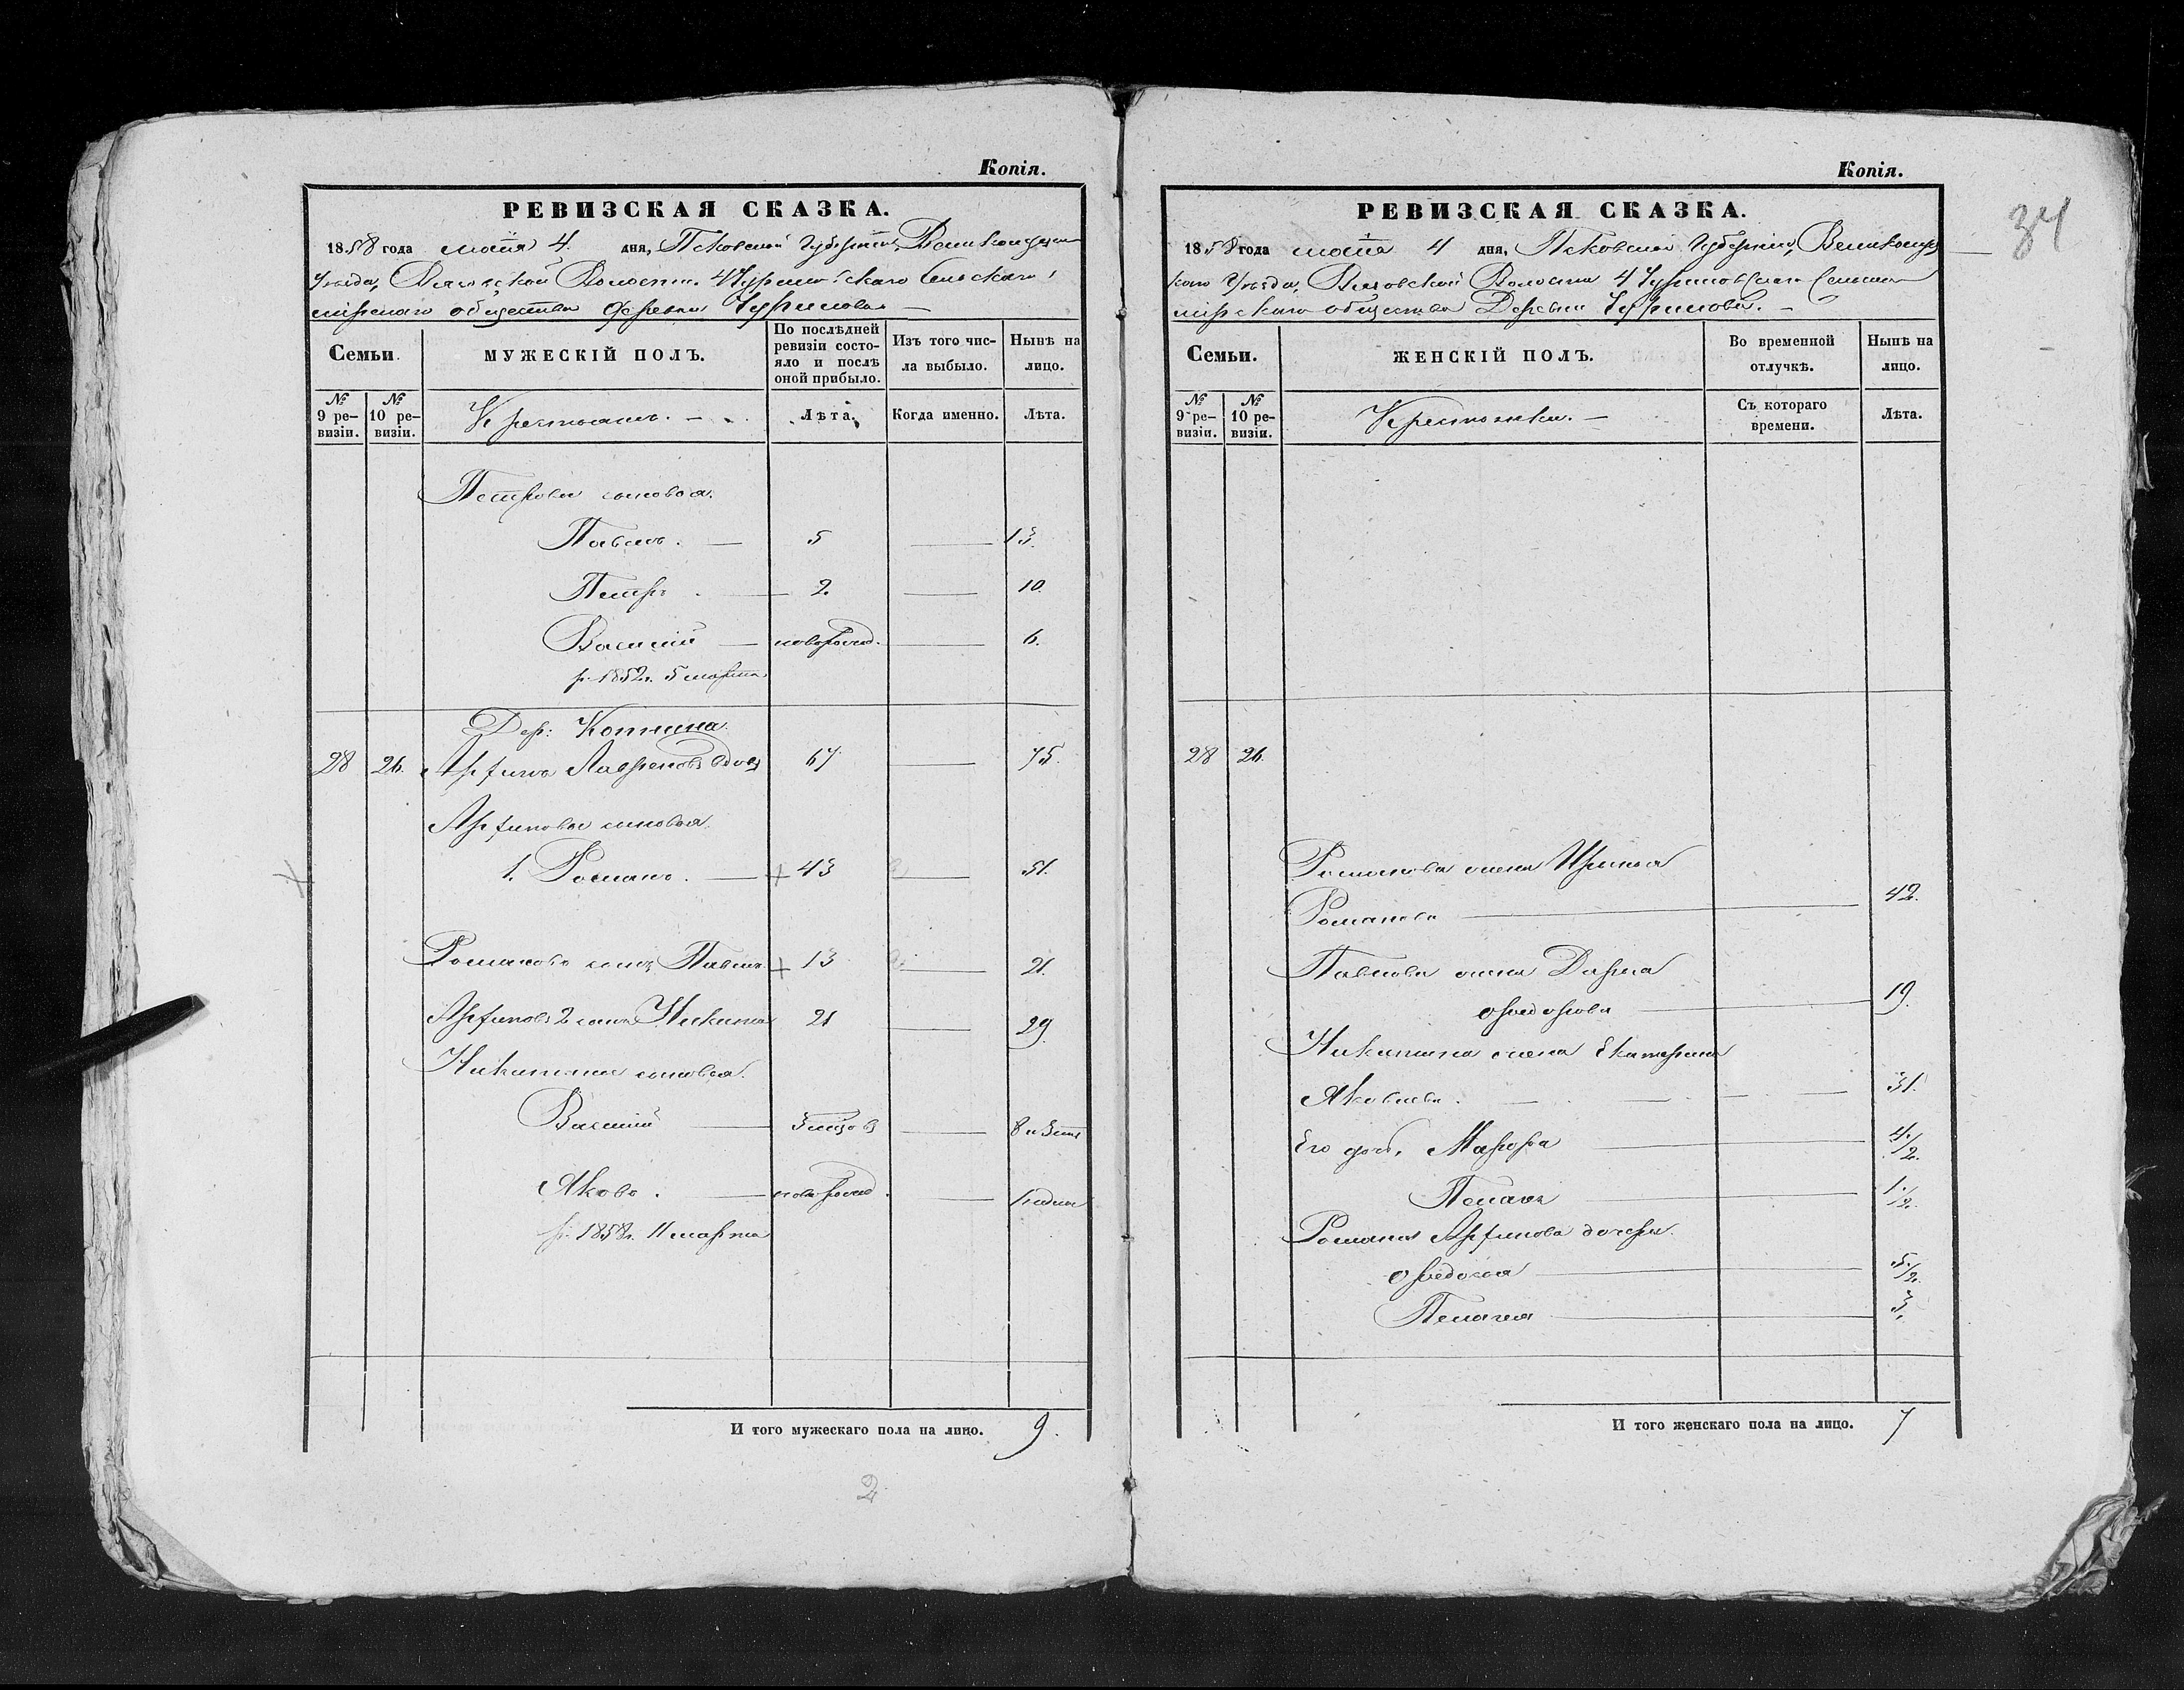 Копія.
РЕВИЗСКАЯ СКАЗКА.
1858 года маія 4. дня, Псковской Губерніи, Великолуцк
Уѣзда, Вязовской Волости. 4 Чуриловскаго Сельскаго
мірскаго общества деревни Чурилова
Семьи. МУЖЕСКІЙ ПОЛЪ. По послѣдней ревизіи состояло и послѣ оной прибыло. Изъ того числа выбыло. Нынѣ на лицо.
№ 9 ревизіи. № 10 ревизіи. Крестьянъ. Лѣта. Когда именно. Лѣта.
Петровы сыновья.
Павелъ. — 5 — 13.
Петръ. — 2. — 10.
Василій — новорожд. — 6.
р. 1852г. 5 марта.
Дер: Котнина
28 26. Арфинъ Лавреновъ вдовъ 67 — 75.
Арфиновы сыновья.
1. Романъ. — + 43 — 51.
Романовъ сынъ Павелъ + 13 — 21.
Арфиновъ 2 сынъ Никита 21 — 29.
Никитины сыновья.
Василій — — 8
Яковъ. — новорожд. —
р. 1858г. 11 марта
И того мужескаго пола на лицо. 9.
2
Копія.
34
РЕВИЗСКАЯ СКАЗКА.
1858 года маія 4 дня, Псковской Губерніи, Великолуц
каго Уѣзда, Вязовской Волости 4 Чуриловскаго Сельскаго
мірскаго общества Деревни Чурилова. —
Семьи. ЖЕНСКІЙ ПОЛЪ. Во временной отлучкѣ. Нынѣ на лицо.
№ 9 ревизіи. № 10 ревизіи. Крестьянки. — Съ котораго времени. Лѣта.
28 26.
Романова жена Ирина
Романова — 42.
Павлова жена Дарья
Ѳедорова — 19.
Никитина жена Екатерина
Яковлева. — 31.
Его доч. Марфа — 4 1/2.
Пелагея — 1 1/2.
Романа Арфинова дочери.
Ѳедосья — 5 1/2.
Пелагея — 3.
И того женскаго пола на лицо. 7